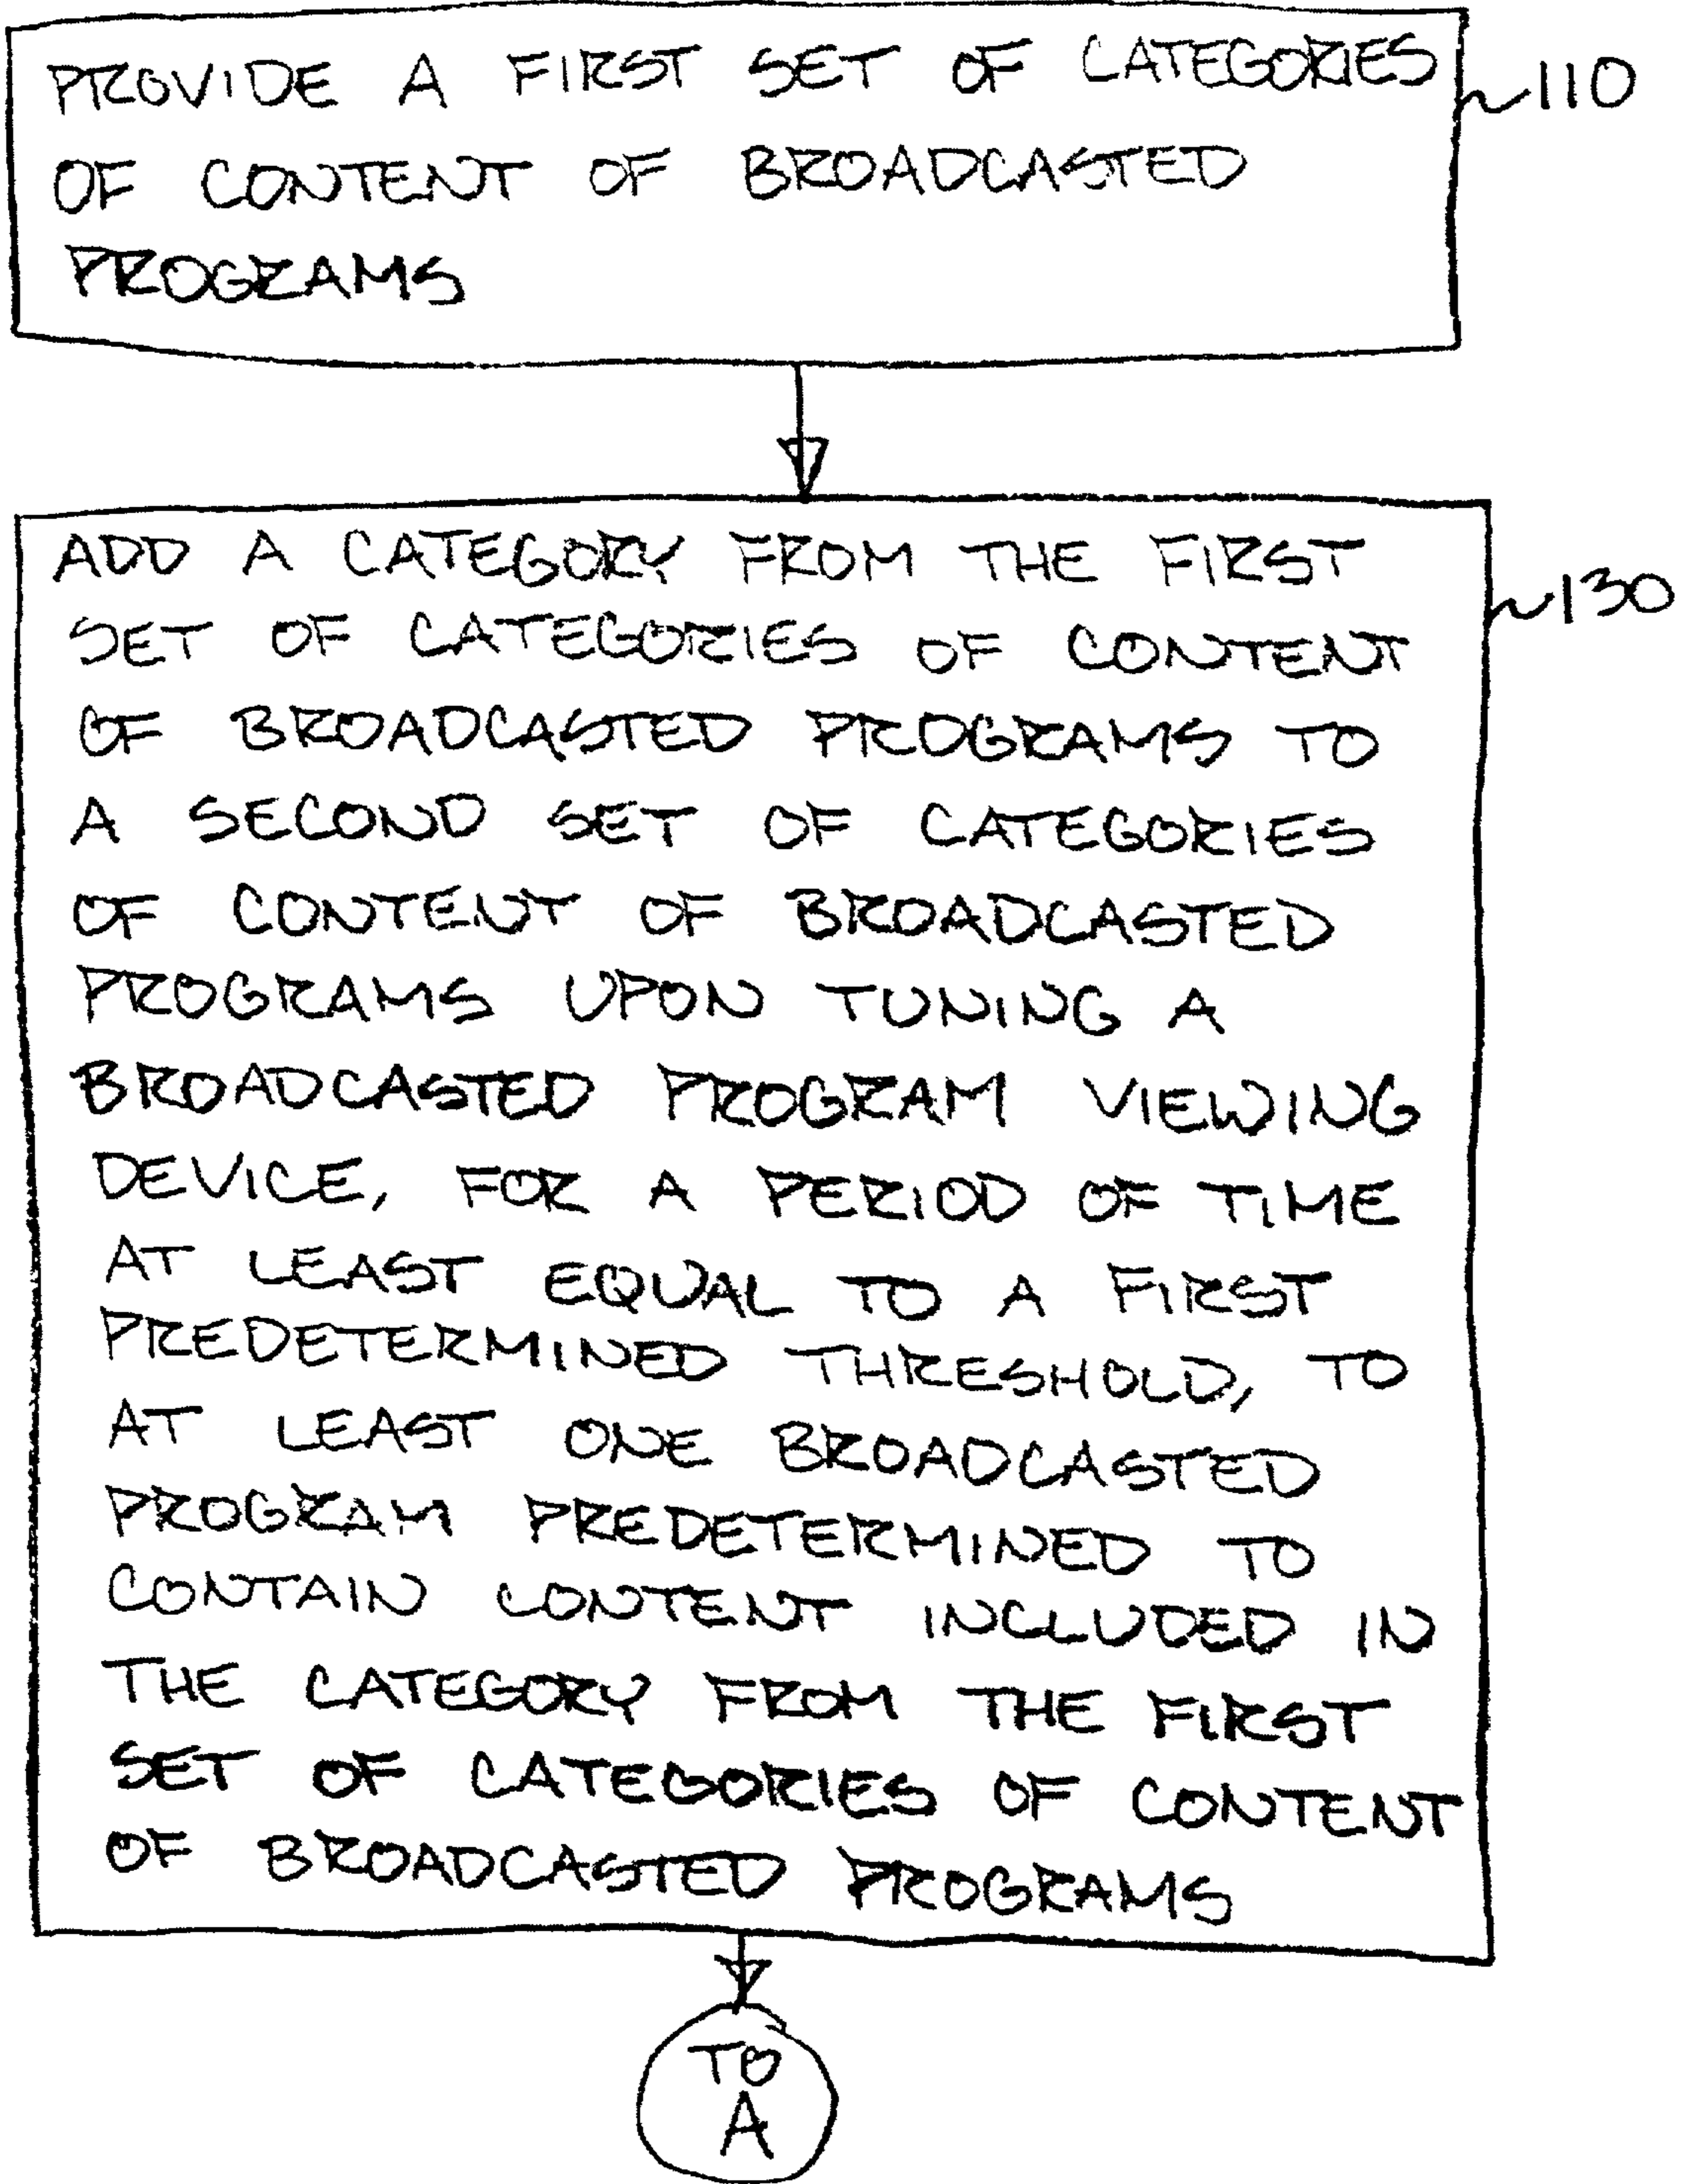 PROVIDE A FIRST SET OF CATEGORIES
OF CONTENT OF BROADCASTED
PROGRAMS
110
ADD A CATEGORY FROM THE FIRST
SET OF CATEGORIES OF CONTENT
OF BROADCASTED PROGRAMS TO
A SECOND SET OF CATEGORIES
OF CONTENT OF BROADCASTED
PROGRAMS UPON TUNING A
BROADCASTED PROGRAM VIEWING
DEVICE, FOR A PERIOD OF TIME
AT LEAST EQUAL TO A FIRST
PREDETERMINED THRESHOLD, TO
AT LEAST ONE BROADCASTED
PROGRAM PREDETERMINED TO
CONTAIN CONTENT INCLUDED IN
THE CATEGORY FROM THE FIRST
SET OF CATEGORIES OF CONTENT
OF BROADCASTED PROGRAMS
130
TO
A